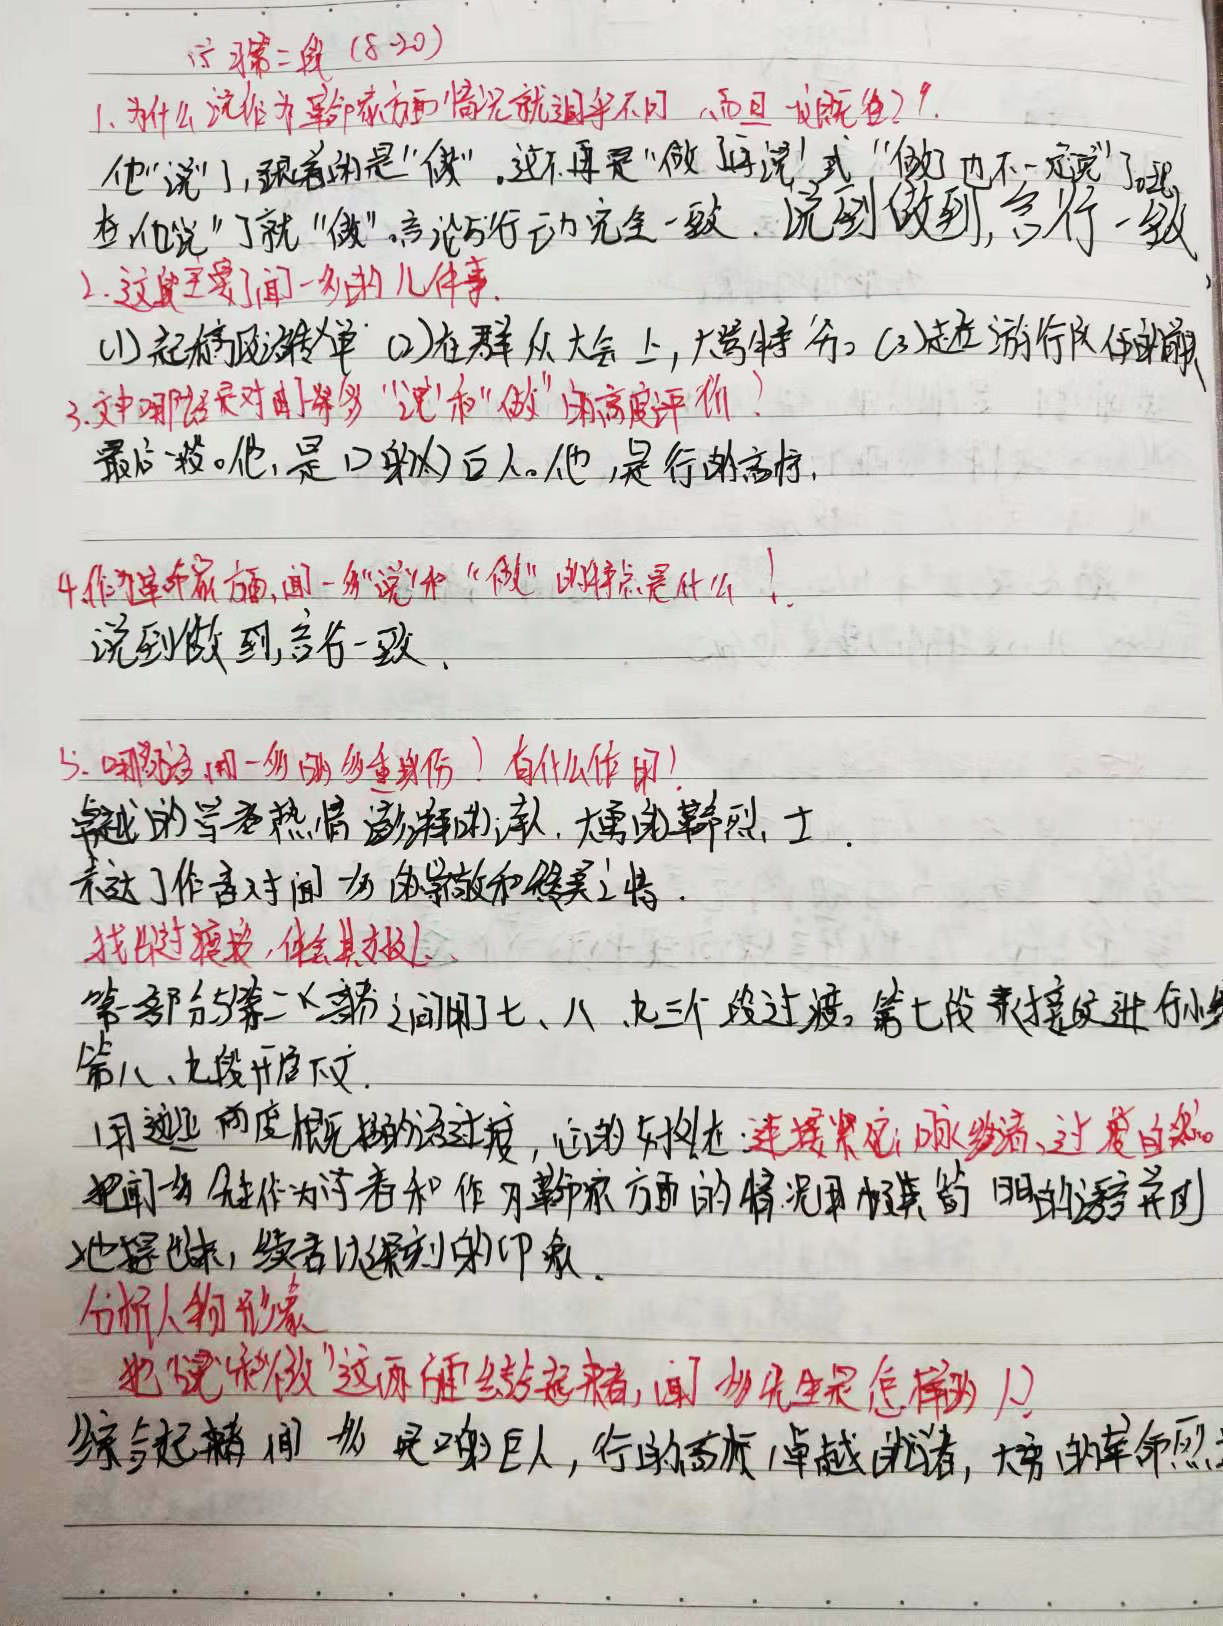 习第二段(8-20)
1、为什么说作为革命家方面情况就迥乎不同,而且一反既往?
他"说"了,跟着的是"做"。这不再是"做了再说"或"做了也不一定说"了。现
在,他"说"了就"做"。言论与行动完全一致.说到做到,言行一致、
2.这段主要了闻一多的几件事.
(1)起稿政治传单 (2)在群众大会上,大骂特务。(3)走在游行队伍的前
3.文中哪 对闻一多"说"和"做"的高度评价?
最后一段。他,是口的巨人。他,是行的高标.
4.作为革命家方面,闻一多"说"和"做"的特点是什么!
说到做到,言行一致.
5.哪 闻一多的多重身份?有什么作用?
卓越的学者热情澎湃的诗人.大勇的革命烈士.
表达了作者对闻一多的崇敬和 之情.
找出过渡段,体会其 .
第一部分与第二 部分之间用了七、八、九三个段过渡。第七段承接 进行小
第八、九段开启下文.
用这 两度概括的语过度,它的好处在:连接紧密, 过度自然。
把闻一多先生作为学者和作为革命家方面的情况用极其简明的语言并列
地提出来,续者以深刻的印象.
分析人物形象
把"说"和"做"这两方面结合起来看,闻一多先生是怎样的人?
综合起来看闻一多是口的巨人,行的高标,卓越的学者,大勇的革命烈士